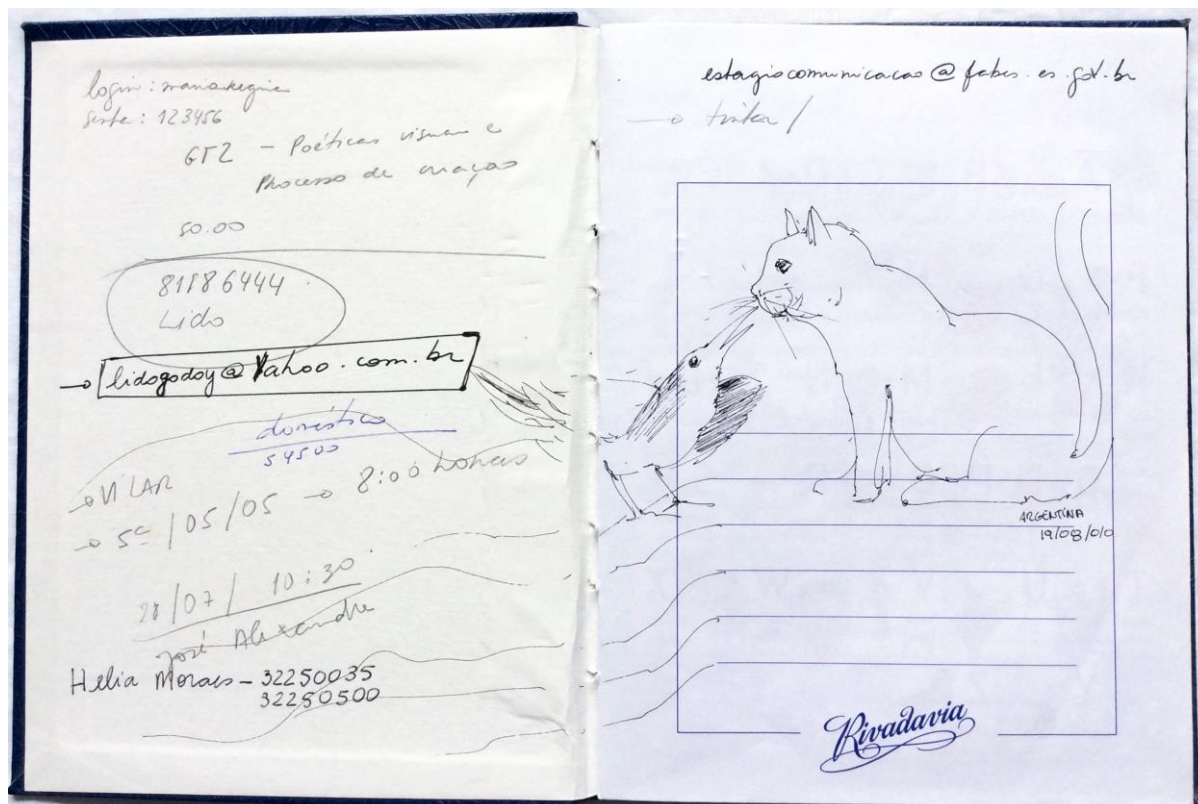 login: mariaregina
senha: 123456
GT2 - Poéticas visuais e
Processo de criação
50.00
81186444
Lido
→ lidogodoy@Yahoo.com.br
doméstico
54500
→ VILAR
→ 5ª /05/05 → 8:00 horas
28/07/ 10:30
José Alexandre
Helia Moraes - 32250035
32250500
estagiocomunicacao@fabes.es.gov.br
ARGENTINA
19/08/010
Rivadavia